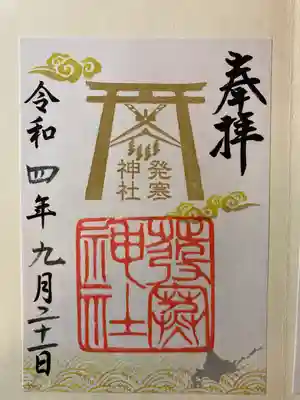 奉拝
発寒
神社
発寒
神社
令和四年九月二十一日